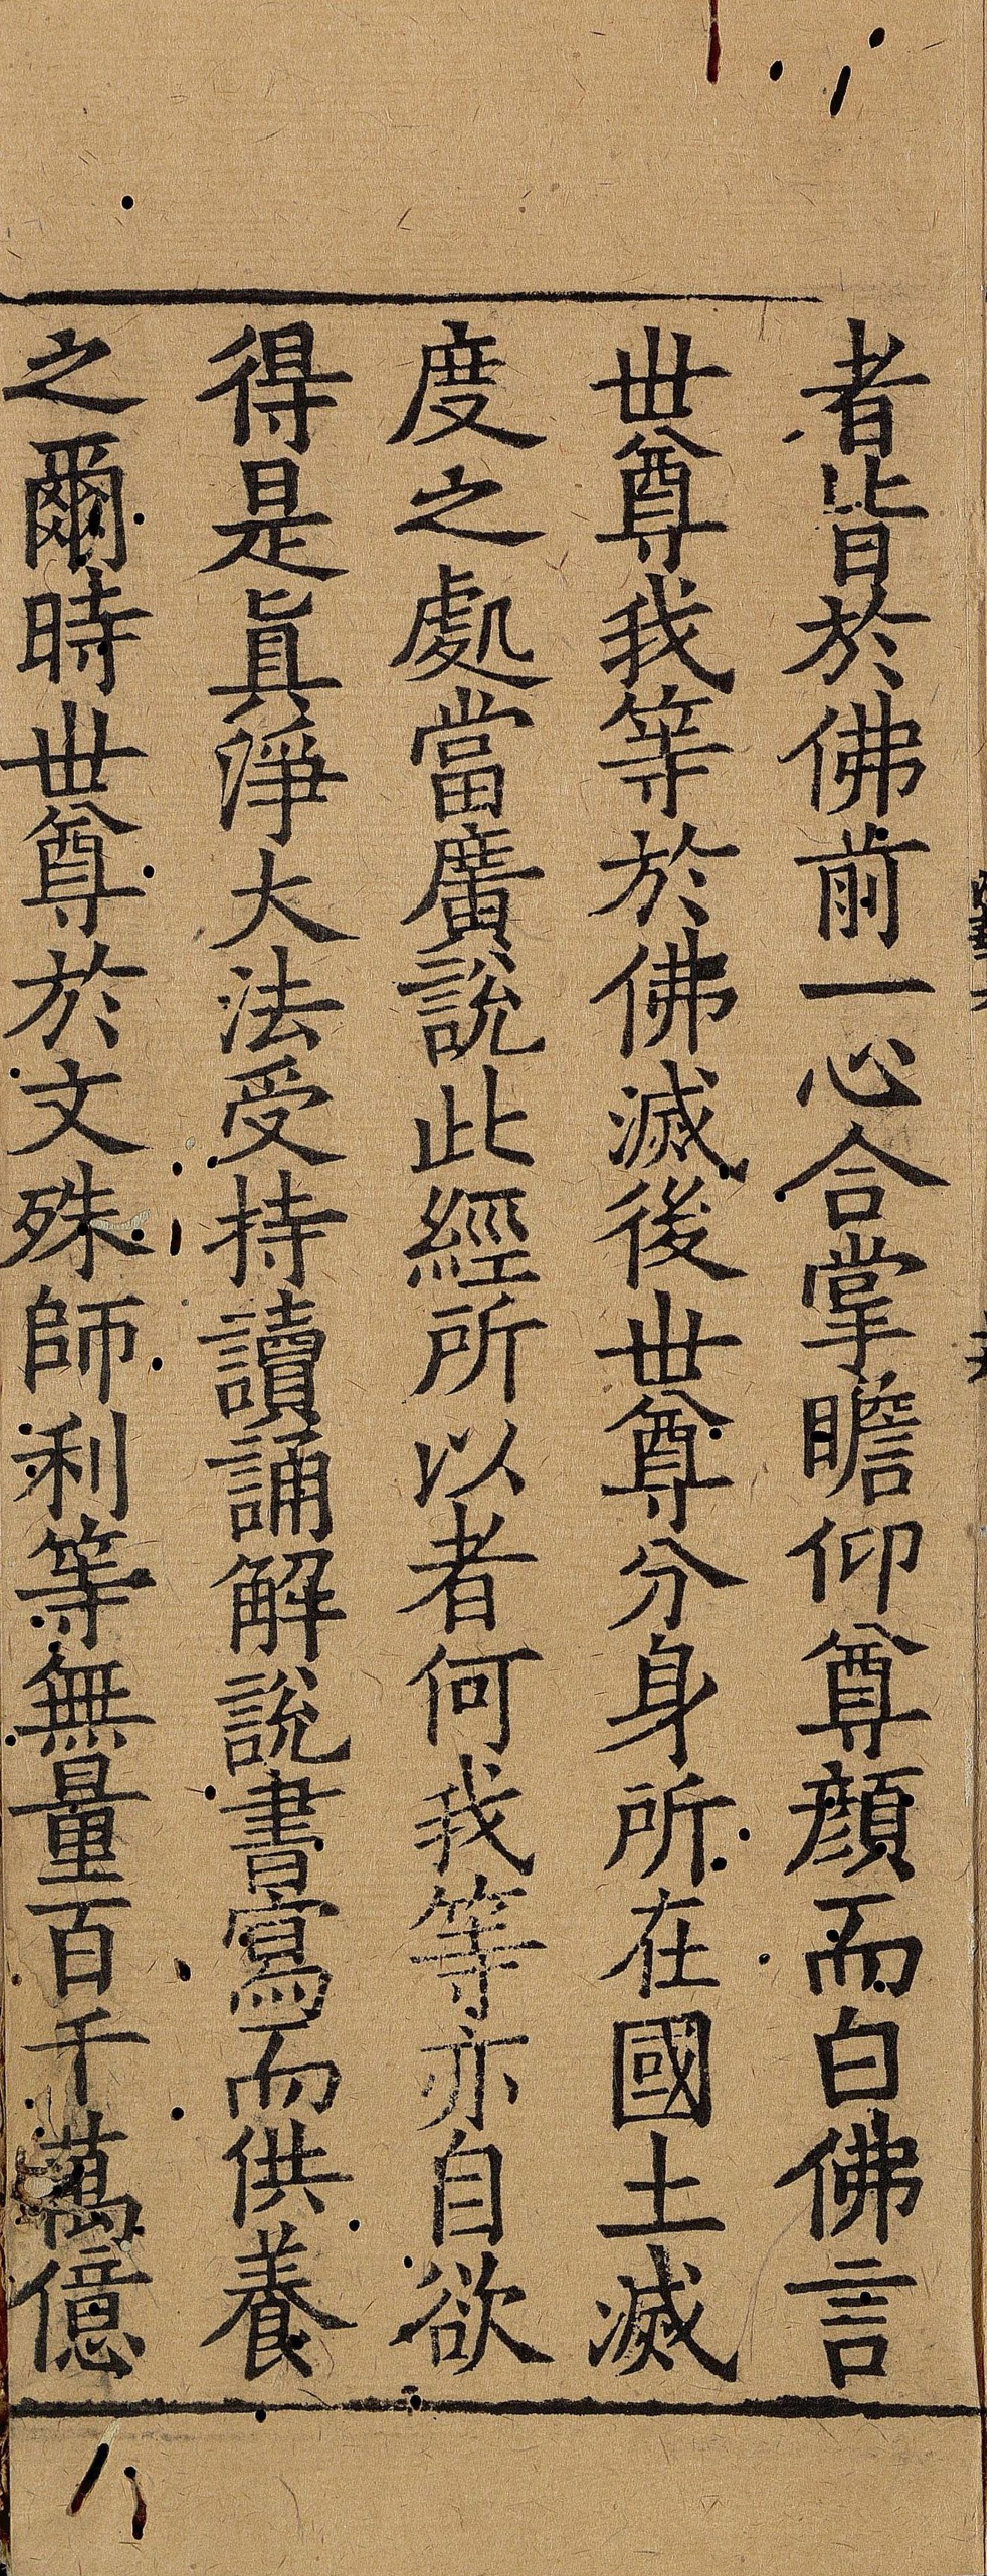 者皆於佛前一心合掌瞻仰尊顔而白佛言
世尊我等於佛滅後世尊分身所在國土滅
度之處當廣說此經所以者何我等亦自欲
得是眞淨大法受持讀誦解說書寫而供養
之爾時世尊於文殊師利等無量百千萬億